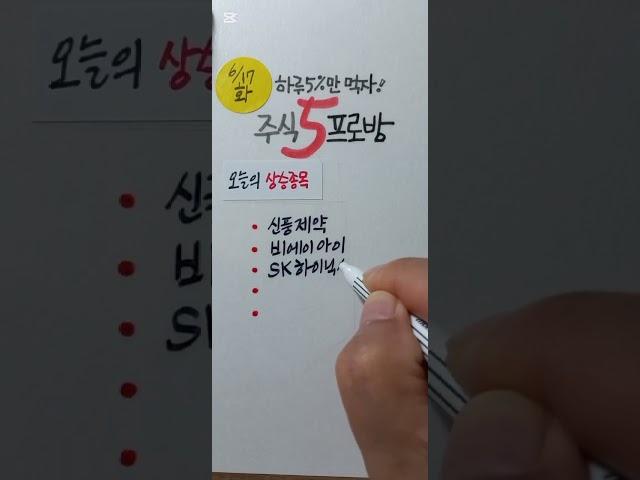 6/17
화
하루5%만 먹자!!
주식5프로방
오늘의 상승종목
• 신풍제약
• 비에이아이
• SK하이닉
•
•